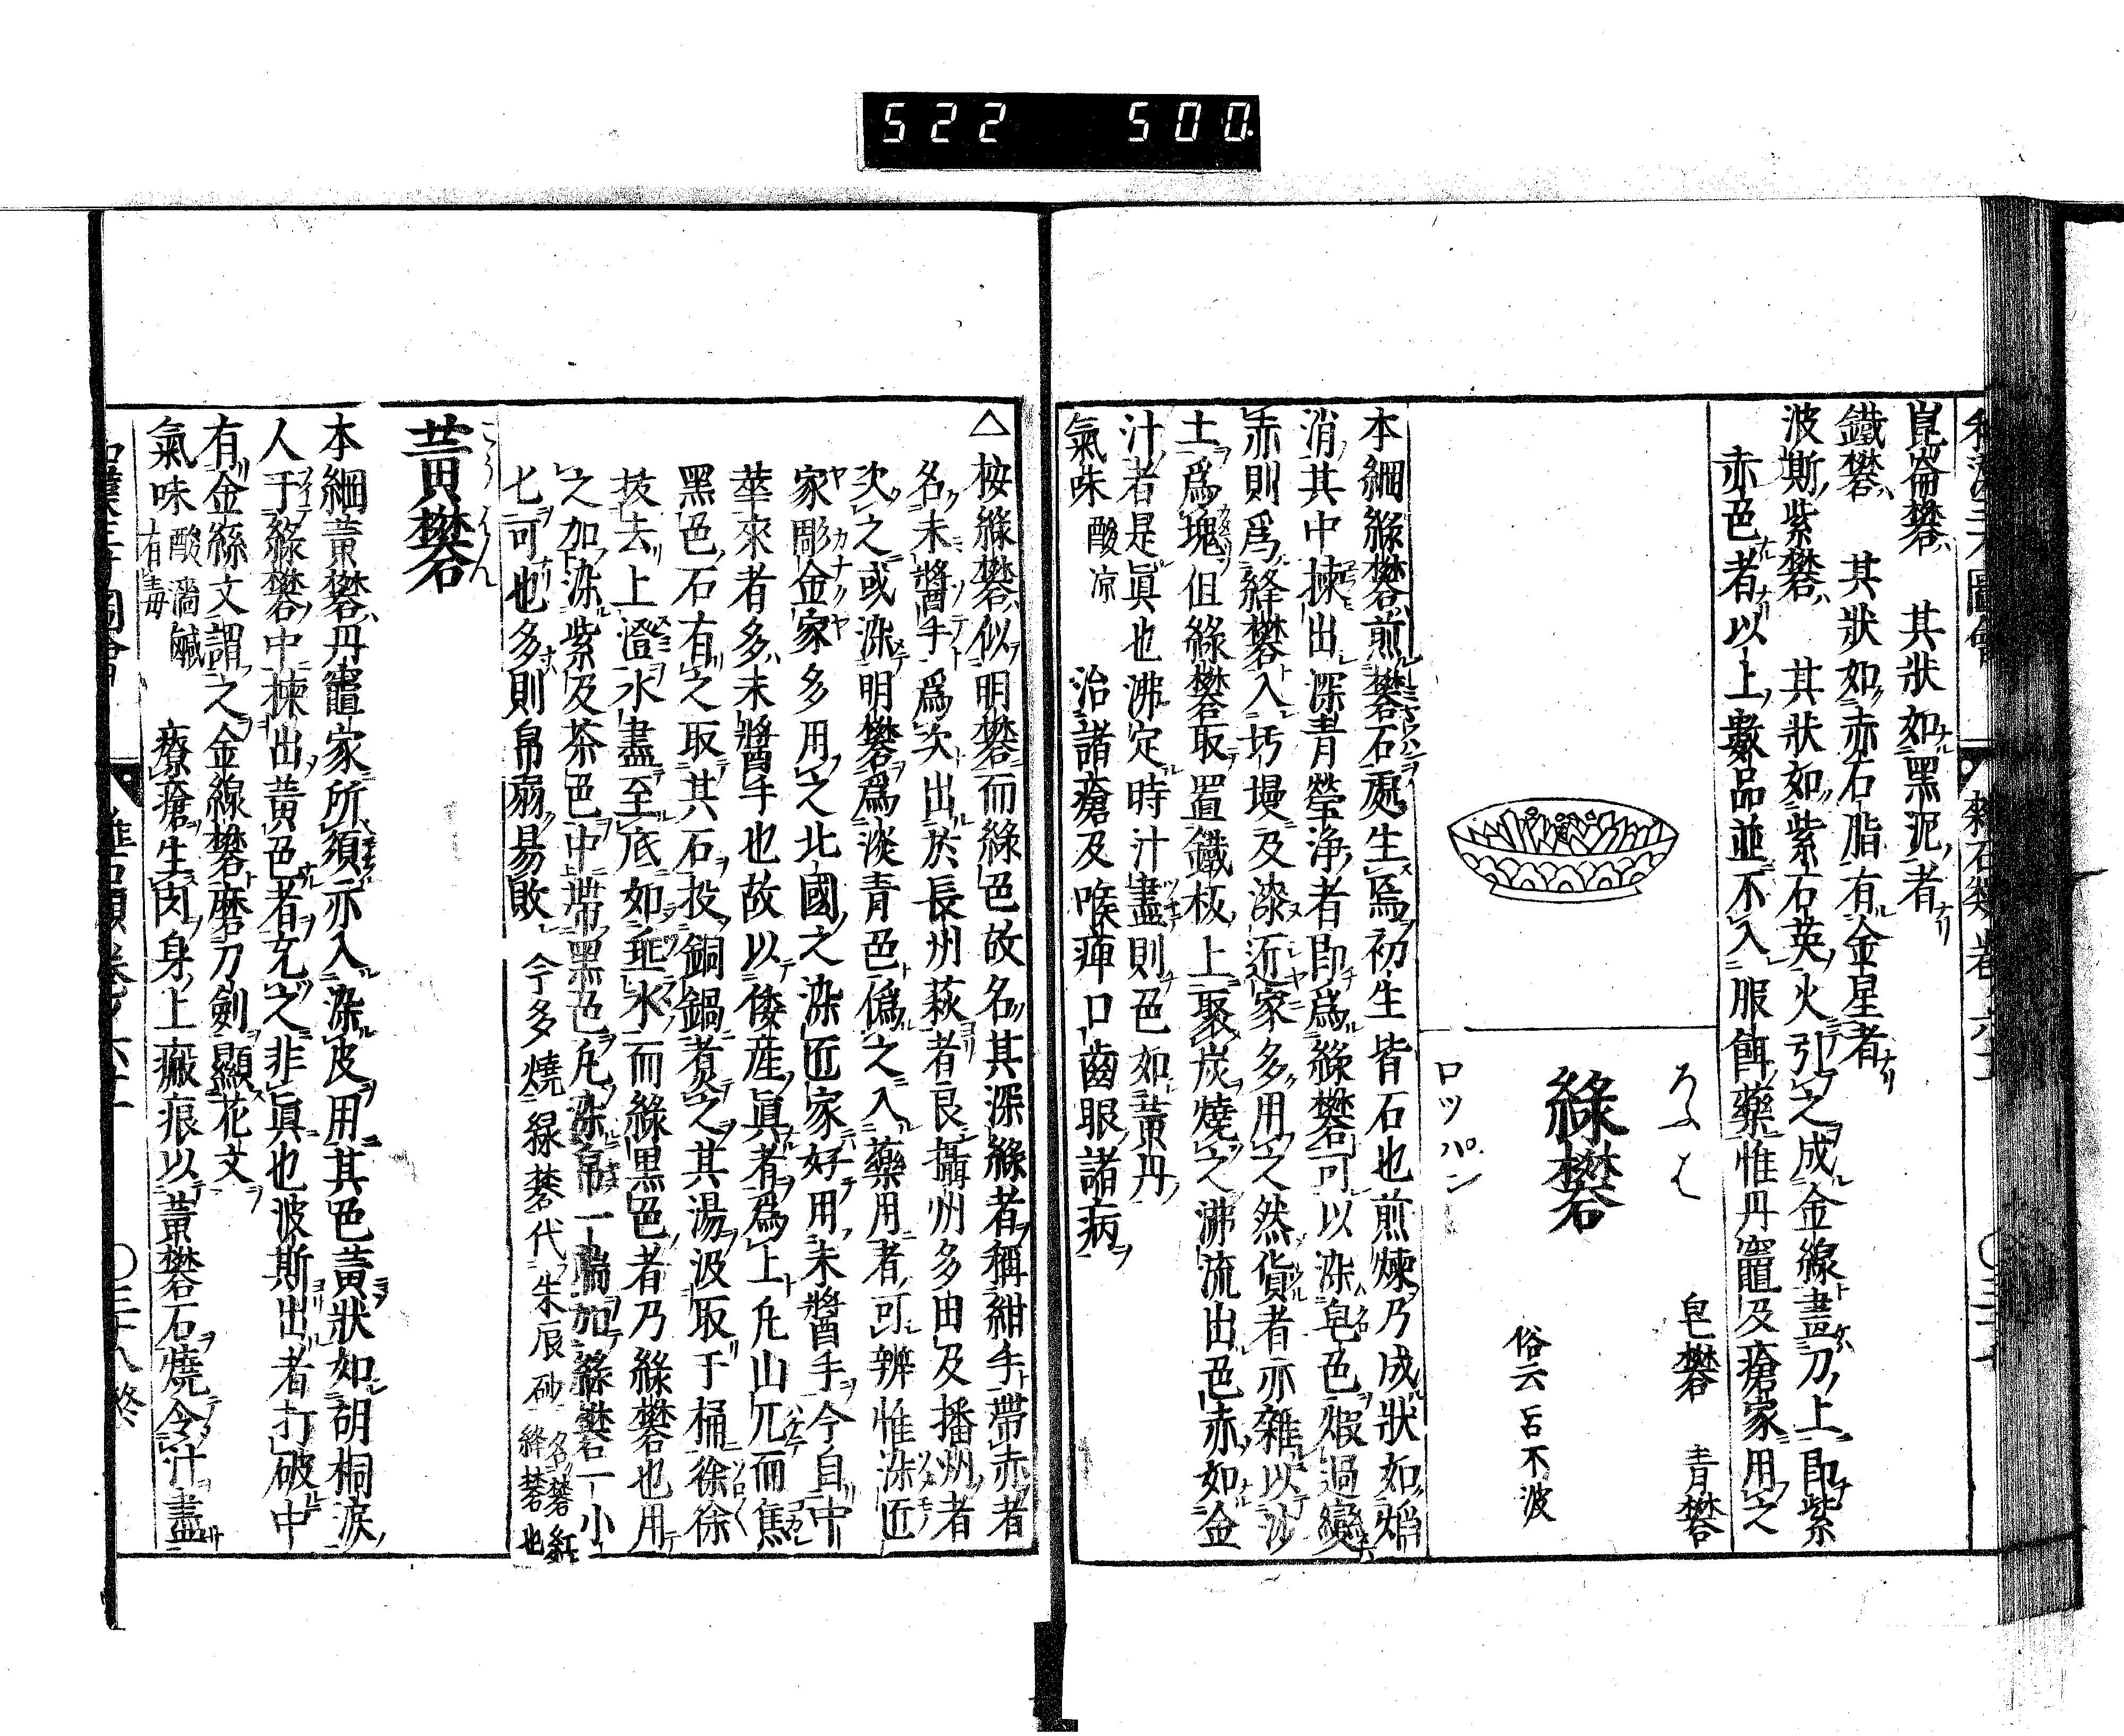 522 500
崑崙礬 其狀如黑泥者
鐵礬 其狀如赤石脂有金星者
波斯紫礬 其狀如紫石英火引之成金線畫刀上即紫
赤色者以上數品並不入服餌藥惟丹竈及瘡家用之
ろふは
綠礬
ロツパン
皂礬 青礬
俗云 呂不波
本綱綠礬煎礬石處生焉初生皆石也煎煉乃成狀如焰
消其中揀出深青瑩浄者即爲綠礬可以染皂色煆過變
赤則爲絳礬入圬墁及漆近家多用之然貨者亦雜以沙
土爲塊但綠礬取置鐵板上聚炭燒之沸流出色赤如金
汁者是眞也沸定時汁盡則色如黃丹
氣味 酸凉 治諸瘡及喉痺口齒眼諸病
△按綠礬似明礬而綠色故名其深綠者稱紺手帶赤者
名未醬手爲次出於長州萩者良攝州多由及播州者
次之或染明礬爲淡青色僞之入藥用者可辨惟染匠
家彫金家多用之北國之染匠家好用未醬手今自中
華來者多未醬手也故以倭産眞者爲上凡山兀而焦
黑色石有之取其石投銅鍋煮之其湯汲取于桶徐徐
拔去上澄水盡至底如埀水而綠黑色者乃綠礬也用
之加染紫及茶色中帶黑色凡染帛一端加綠礬一小
七可也多則帛弱易敗 今多燒緑礬代朱辰砂 名礬紅
絳礬也
こうはん
黃礬
本綱黃礬丹竈家所須亦入染皮用其色黃狀如胡桐淚
人于綠礬中揀出黃色者充之非眞也波斯出者打破中
有金絲文謂之金線礬磨刀劍顯花文
氣味 酸濇鹹
有毒 療瘡生肉身上瘢痕以黃礬石燒令汁盡